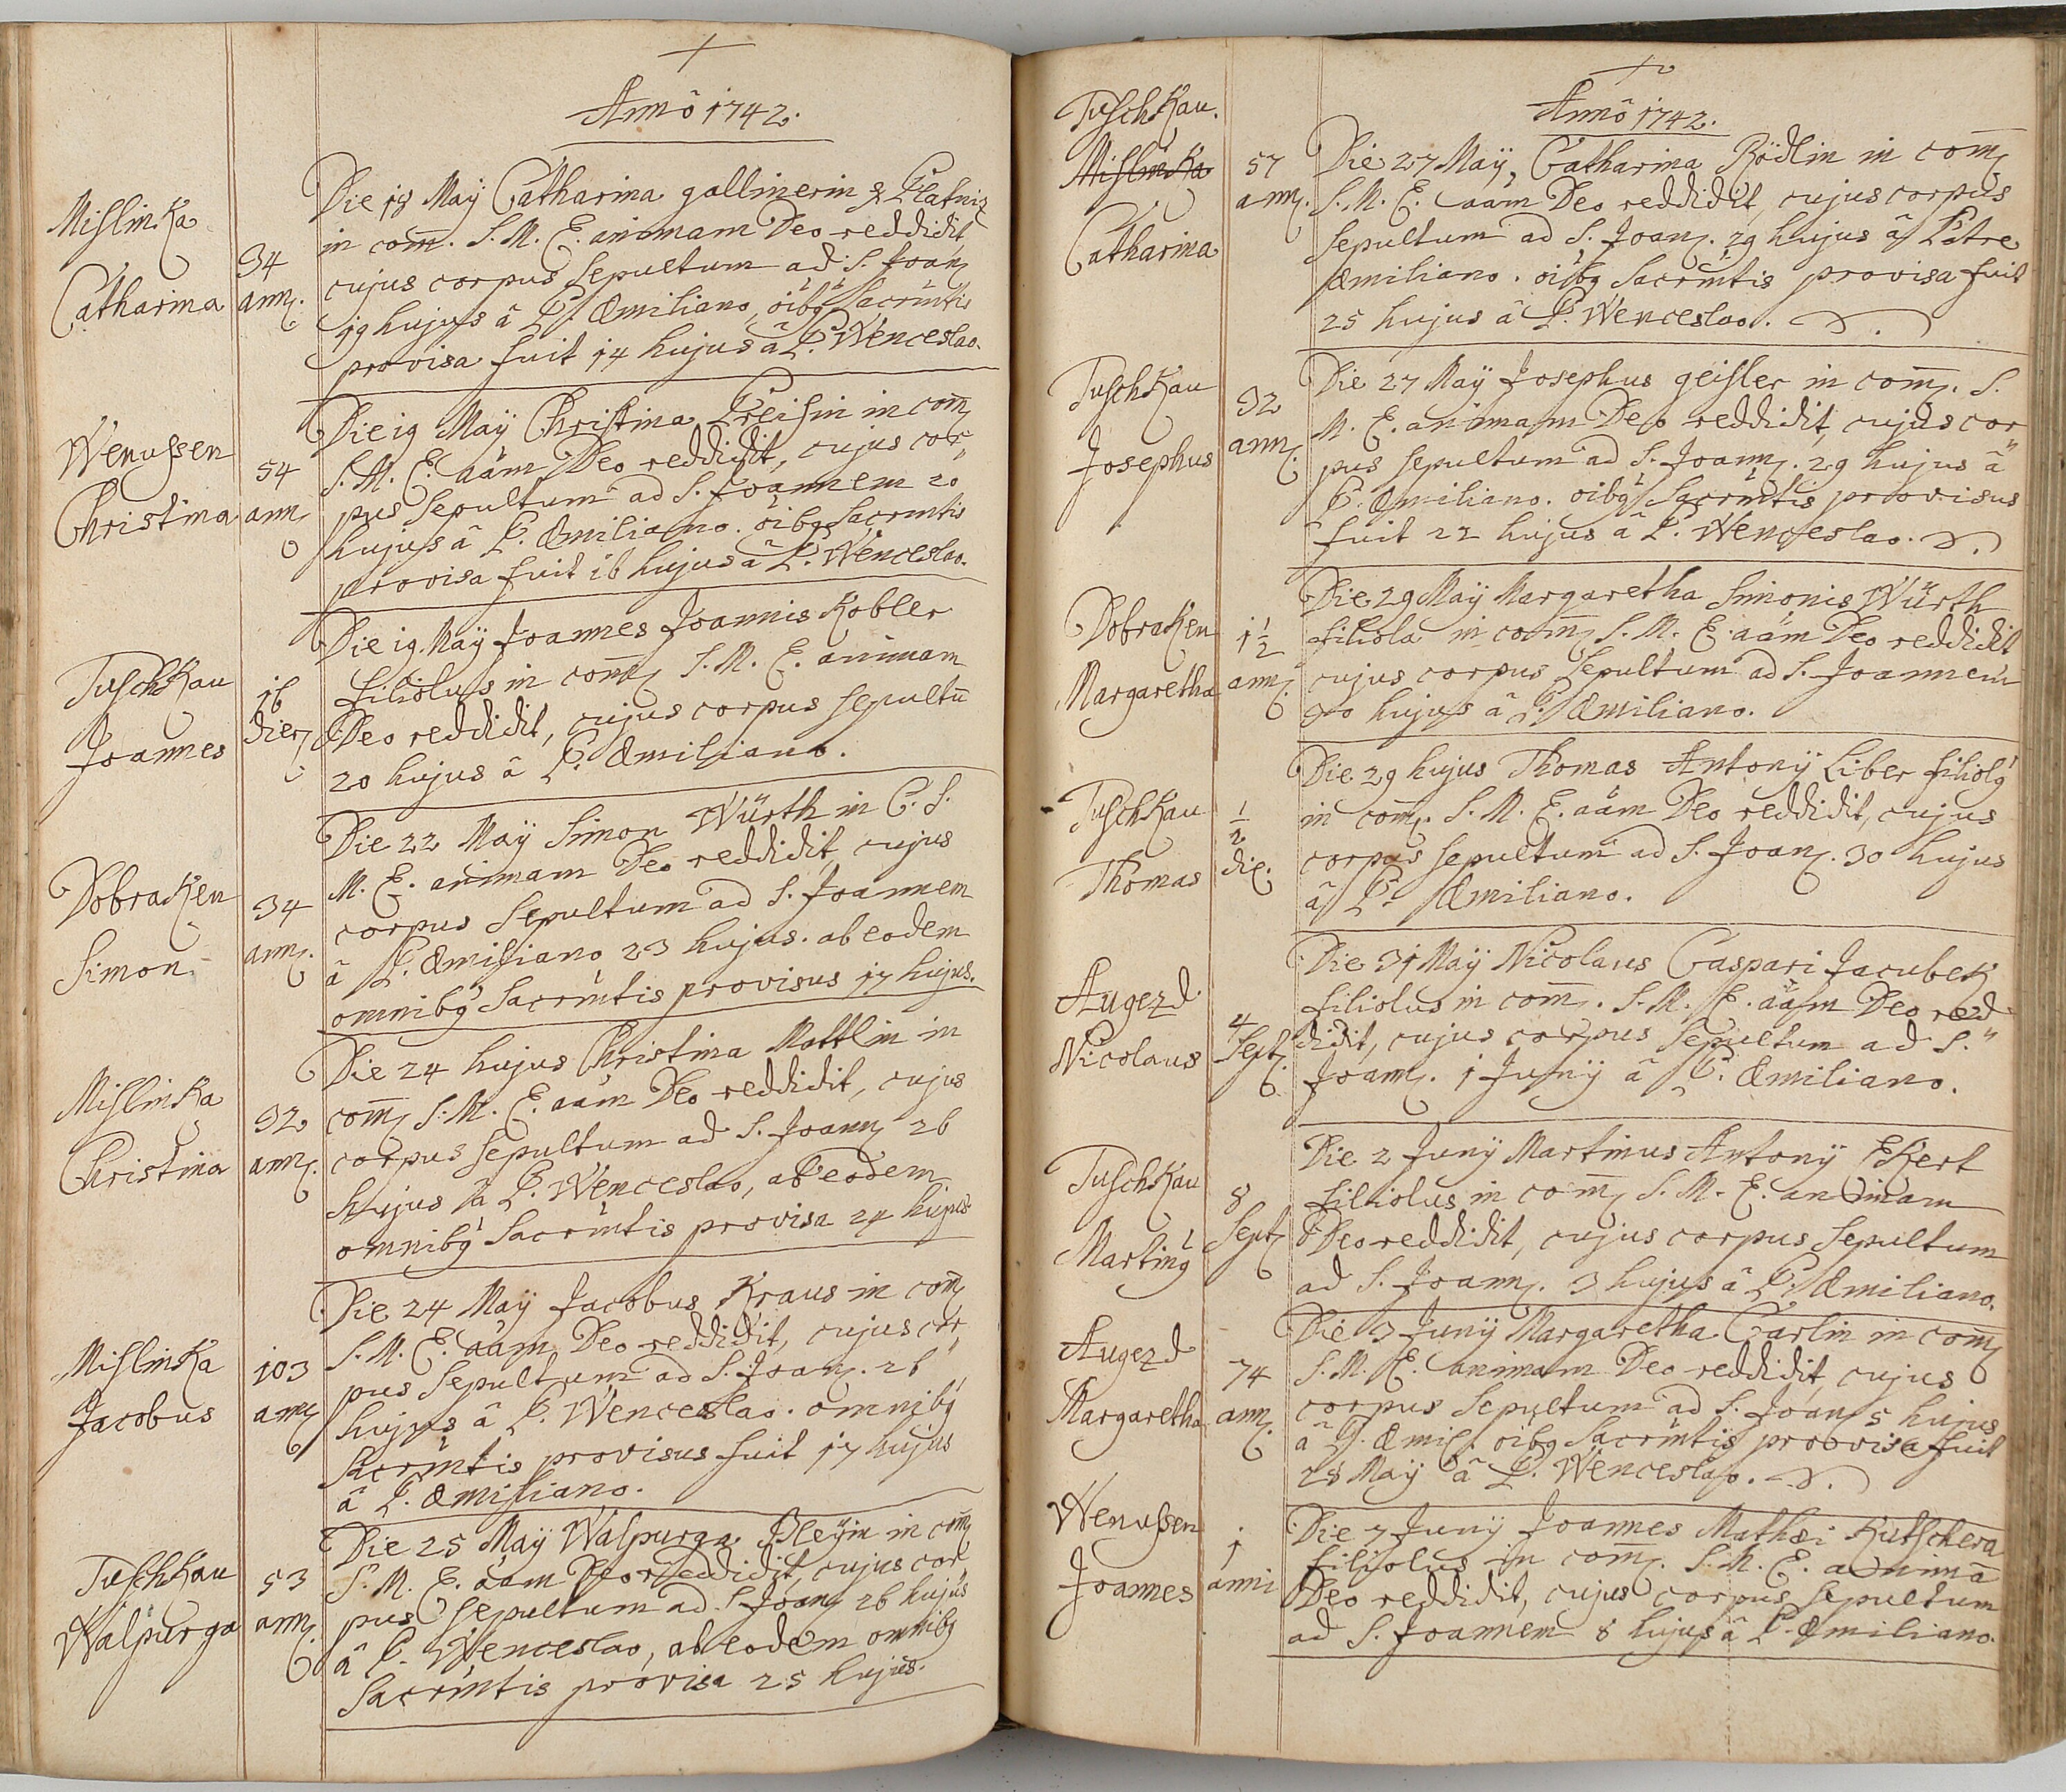 Annô 1742.
Mislinka
Catharina
34
ann.
Die 18 Maÿ Catharina gallinerin
in com. S. M. E. animam Deo reddidit,
cujus corpus sepultum ad S. Joan.
19 hujus â P. Æmiliano, oibq Sacrm̄tis
provisa fuit 14 hujus â P. Wenceslao.
Wenussen
Christina
54
ann.
Die 19 Maÿ Christina Preisin in com̄.
S. M. E. aām Deo reddidit, cujus cor"
pus sepultum ad S. Joannem 20
hujus â P. Æmiliano. oibq Sacrm̄tis
provisa fuit 16 hujus â P. Wenceslao.
Tuschkau
Joannes
16
dier.
Die 19 Maÿ Joannes Joannis Kobler
filiolus in com̄. S. M. E. animam
Deo reddidit, cujus corpus sepultū
20 hujus â P. Æmiliano.
Dobraken
Simon
34
ann.
Die 22 Maÿ Simon Würth in C. S.
M. E. animam Deo reddidit, cujus
corpus sepultum ad S. Joannem
â P. Æmiliano 23 hujus. ab eodem
omnibq Sacrm̄tis provisus 17 hujus.
Mislinka
Christina
32
ann.
Die 24 hujus Christina Mattlin in
com̄. S. M. E. aām Deo reddidit, cujus
corpus sepultum ad S. Joann. 26
hujus â P. Wenceslao, ab eodem
omnibq Sacrm̄tis provisa 24 hujus.
Mislinka
Jacobus
103
ann.
Die 24 Maÿ Jacobus Kraus in com̄.
S. M. E. aām Deo reddidit, cujus cor"
pus sepultum ad S. Joan. 26
hujus â P. Wenceslao. omnibq
Sacrm̄tis provisus fuit 17 hujus
â P. Æmiliano.
Tuschkau
Walpurga
53
ann.
Die 25 Maÿ Walpurga Pleÿin in com̄.
S. M. E. aām Deo reddidit, cujus cor
pus sepultum ad S. Joan. 26 hujus
â P. Wenceslao, ab eodem omnibq
Sacrm̄tis provisa 25 hujus.
Annô 1742.
Tuschkau.
Mislinka
Catharina
57
ann.
Die 27 Maÿ, Catharina Rödlin in com̄.
S. M. E. aām Deo reddidit, cujus corpus
sepultum ad S. Joan. 29 hujus â Patre
Æmiliano. oibq Sacrm̄tis provisa fuit
25 hujus â P. Wenceslao.
Tuschkau
Josephus
32
ann.
Die 27 Maÿ Josephus geisler in com̄. S.
M. E. animam Deo reddidit, cujus cor"
pus sepultum ad S. Joann. 29 hujus â
P. Æmiliano. oibq Sacrm̄tis provisus
fuit 22 hujus â P. Wenceslao.
Dobraken
Margaretha
1 1/2
ann.
Die 29 Maÿ Margaretha Simonis Würth
filiola in com̄. S. M. E. aām Deo reddidit
cujus corpus sepultum ad S. Joannem
30 hujus â P. Æmiliano.
Tuschkau
Thomas
1/2
die.
Die 29 hujus Thomas Antonÿ Liber filiolq
in com̄. S. M. E. aām Deo reddidit, cujus
corpus sepultum ad S. Joan. 30 hujus
â P. Æmiliano.
Augezd
Nicolaus
4
Sept.
Die 31 Maÿ Nicolaus Caspari Jacubek
filiolus in com̄. S. M. E. aām Deo red"
didit, cujus corpus sepultum ad S.
Joann. 1 Junÿ â P. Æmiliano.
Tuschkau
Martinq
8
Sept.
Die 2 Junÿ Martinus Antonÿ Ekert
filiolus in com̄. S. M. E. animam
Deo reddidit, cujus corpus sepultum
ad S. Joann. 3 hujus â P. Æmiliano.
Augezd
Margaretha
74
ann.
Die 3 Junÿ Margaretha Carlin in com̄.
S. M. E. animam Deo reddidit, cujus
corpus sepultum ad S. Joan. 5 hujus
â P. Æmil. oibq Sacrm̄tis provisa fuit
28 Maÿ â P. Wenceslao.
Wenussen
Joannes
1
anni
Die 7 Junÿ Joannes Mathæi Kutschera
filiolus in com̄. S. M. E. animā
Deo reddidit, cujus corpus sepultum
ad S. Joannem 8 hujus â P. Æmiliano.